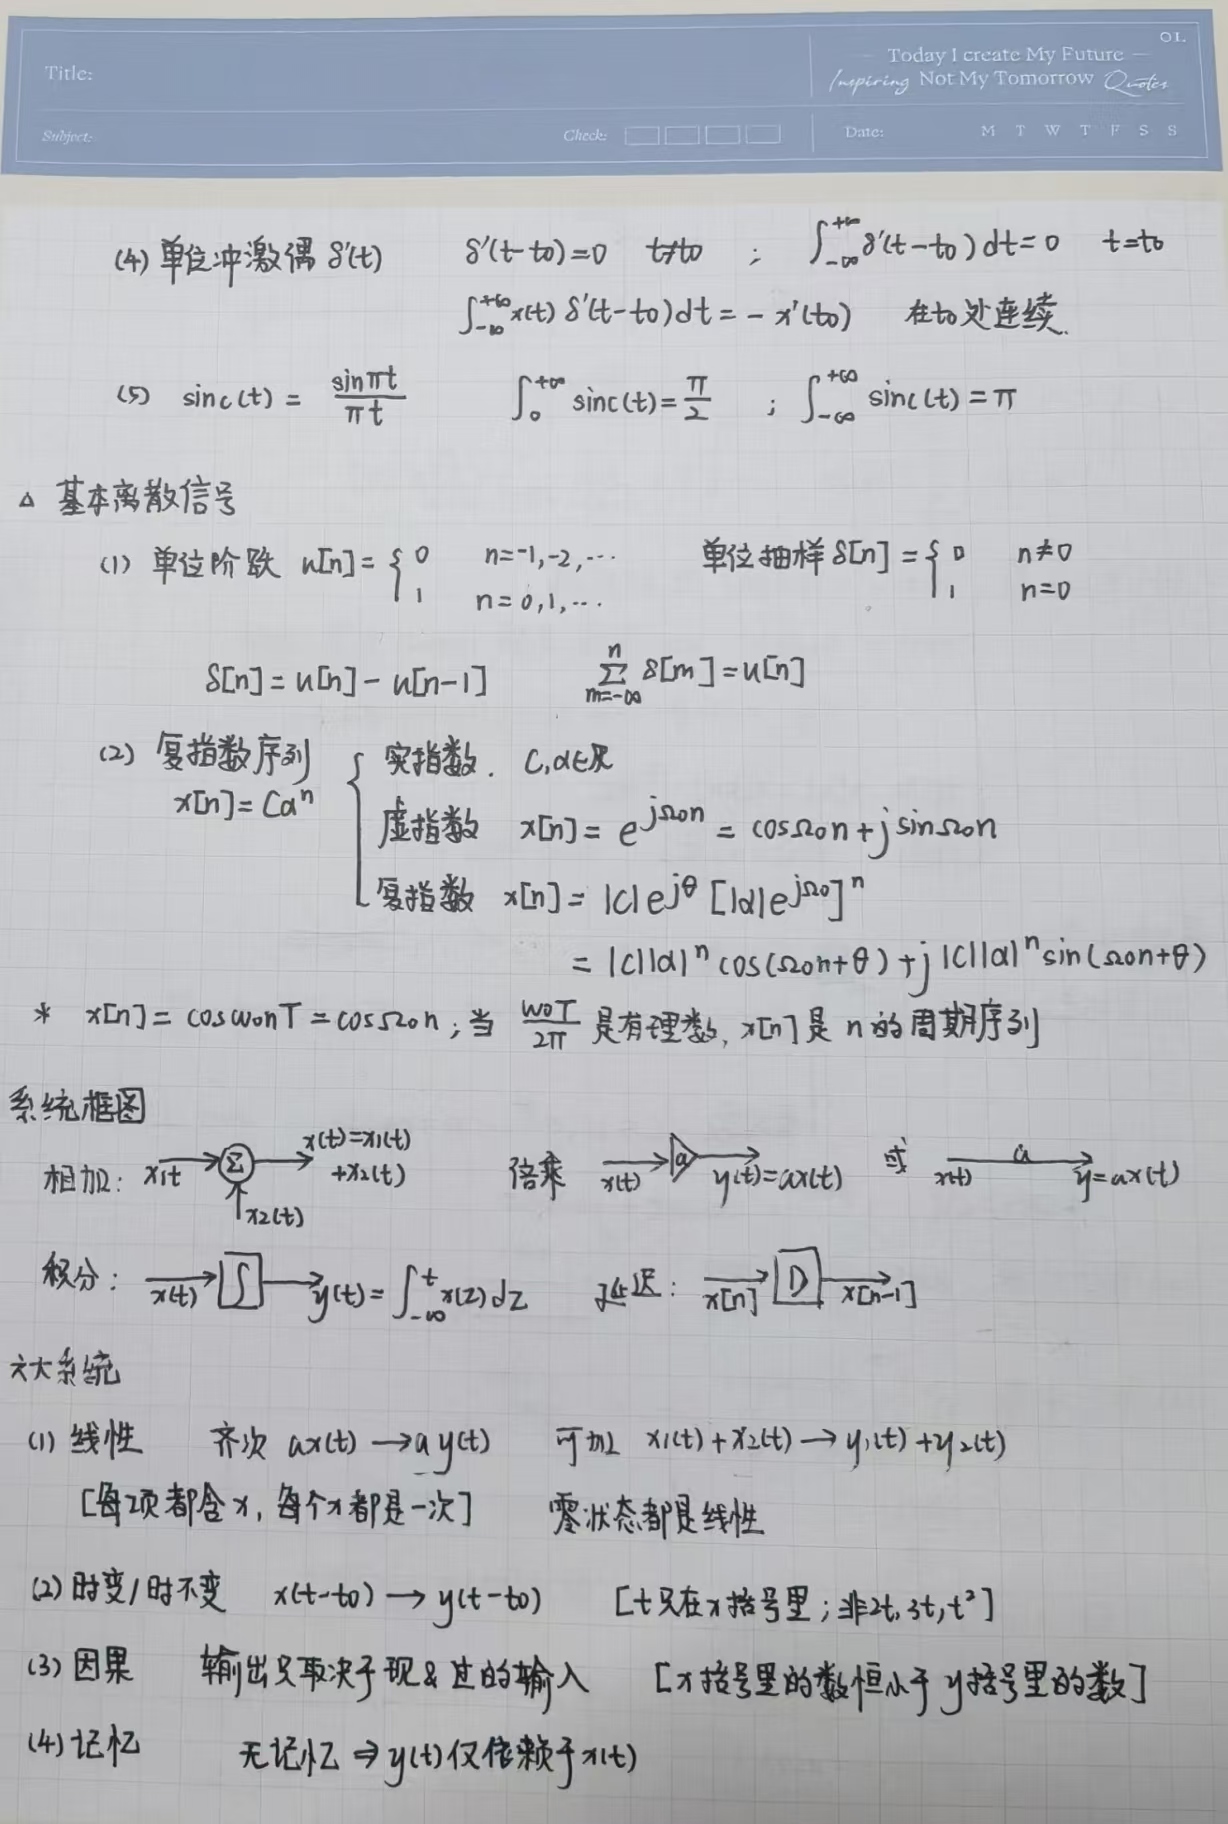 OL
Today I create My Future
Title:
Inspiring Not My Tomorrow Quotes
Subject:
Check:
Date:
M T W T F S S
(4) 单位冲激偶 δ'(t) δ'(t-t0)=0 t≠t0 ; ∫_{-∞}^{+∞} δ'(t-t0)dt=0 t=t0
∫_{-∞}^{+∞} x(t) δ'(t-t0)dt = -x'(t0) 在t0处连续.
(5) sinc(t) = sinπt/πt ∫_0^{+∞} sinc(t)=π/2 ; ∫_{-∞}^{+∞} sinc(t)=π
△ 基本离散信号
(1) 单位阶跃 u[n]={ 0 n=-1,-2,… 单位抽样 δ[n]={ 0 n≠0
1 n=0,1,… 1 n=0
δ[n]=u[n]-u[n-1] Σ_{m=-∞}^{n} δ[m]=u[n]
(2) 复指数序列 { 实指数. C,α∈R
x[n]=Cα^n
虚指数 x[n]=e^{jΩ0n} = cosΩ0n+jsinΩ0n
复指数 x[n]=|C|e^{jθ}[|α|e^{jΩ0}]^n
=|C||α|^n cos(Ω0n+θ)+j|C||α|^n sin(Ω0n+θ)
* x[n]=cosw0nT=cosΩ0n;当 w0T/2π 是有理数,x[n]是n的周期序列
系统框图
相加: x1t → Σ → x(t)=x1(t)+x2(t) 倍乘 x(t) → a → y(t)=ax(t) 或 x(t) a → y=ax(t)
↑x2(t)
积分: x(t) → ∫ → y(t)=∫_{-∞}^{t} x(z)dz 延迟: x[n] → D → x[n-1]
六大系统
(1) 线性 齐次 ax(t)→ay(t) 可加 x1(t)+x2(t)→y1(t)+y2(t)
[每项都含x,每个x都是一次] 零状态都是线性
(2) 时变/时不变 x(t-t0)→y(t-t0) [t只在x括号里;非2t,3t,t²]
(3) 因果 输出只取决于现&过的输入 [x括号里的数恒小于y括号里的数]
(4) 记忆 无记忆⇒y(t)仅依赖于x(t)